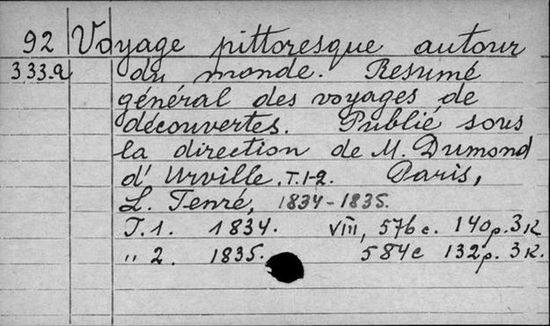 92 Voyage pittoresque autour
333.a du monde. Resumé
général des voyages de
découvertes. Publié sous
la direction de M. Dumond
d'Urville. T.1-2. Paris,
L. Tenré, 1834-1835.
T.1. 1834. VIII, 576 c. 140 p. 3 к.
" 2. 1835. 584 c 132 p. 3 к.